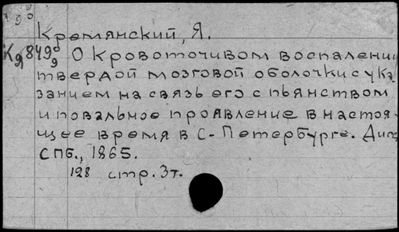 Кремянский, Я.
О кровоточивом воспалении
твердой мозговой оболочки с ука
занием на связь его с пьянством
и повальное проявление в настоя-
щее время в С-Петербурге. Дисс
СПб., 1865.
128 стр. 3т.